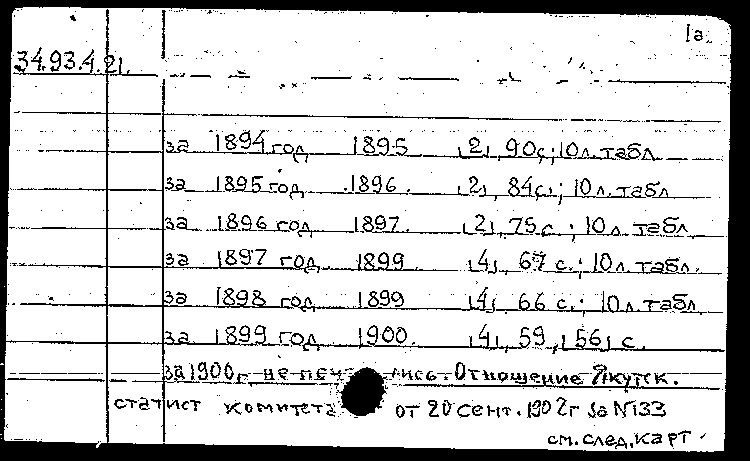 1а
34.93.4.21.
за 1894 год 1895 [2], 90с; 10л. табл.
за 1895 год 1896. [2], 84с.; 10л. табл
за 1896 год 1897. [2], 75с.; 10л. табл.
за 1897 год 1899 [4], 67 с.; 10л. табл.
за 1898 год 1899 [4], 66 с.; 10л. табл
за 1899 год 1900. [4], 59, [56] с.
за 1900г. не печ лись. Отношение Якутск.
статист комитета от 20 сент. 1902г за №133
см. след. карт.